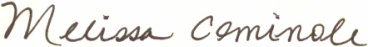 Melissa Cominole